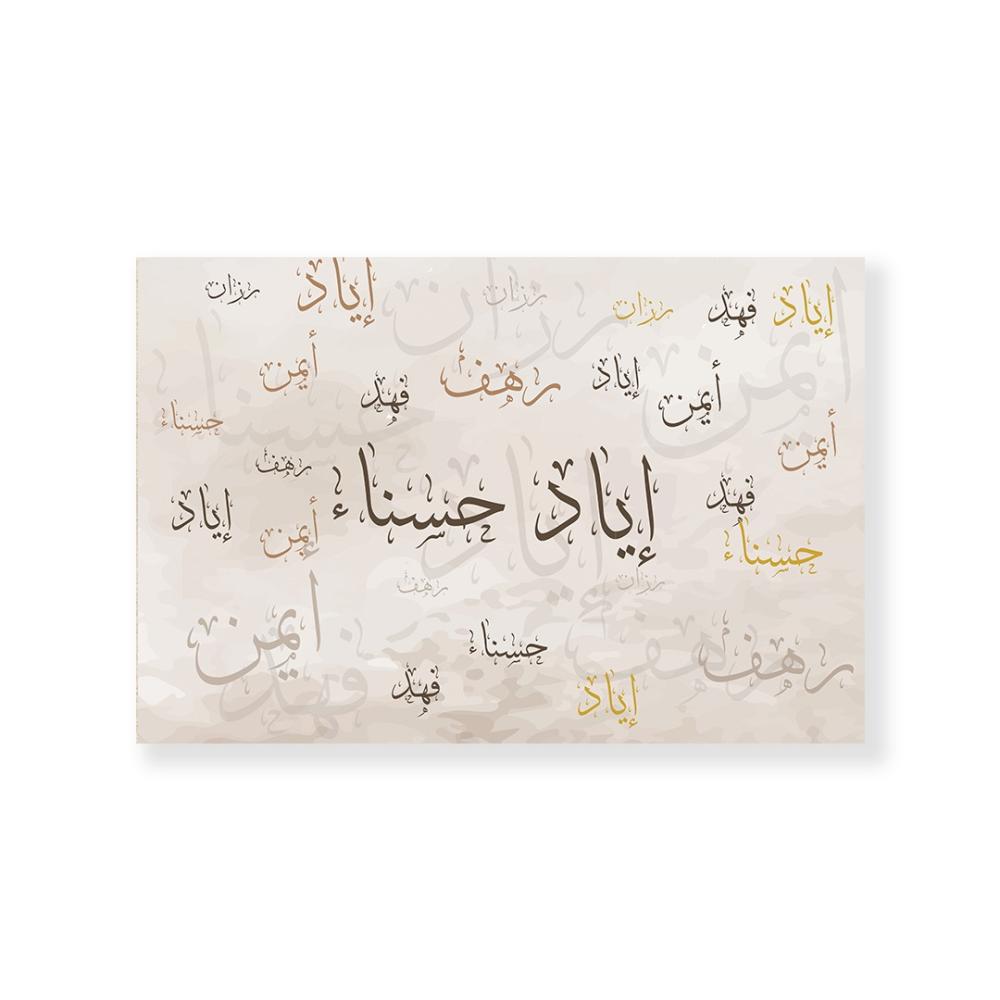 رزان إياد رزان رزان فهد إياد
أيمن فهد رهف إياد أيمن أيمن
حسناء حسناء أيمن
رهف فهد
إياد أيمن إياد حسناء إياد حسناء
رهف رزان
أيمن فهد حسناء رهف رهف
فهد إياد